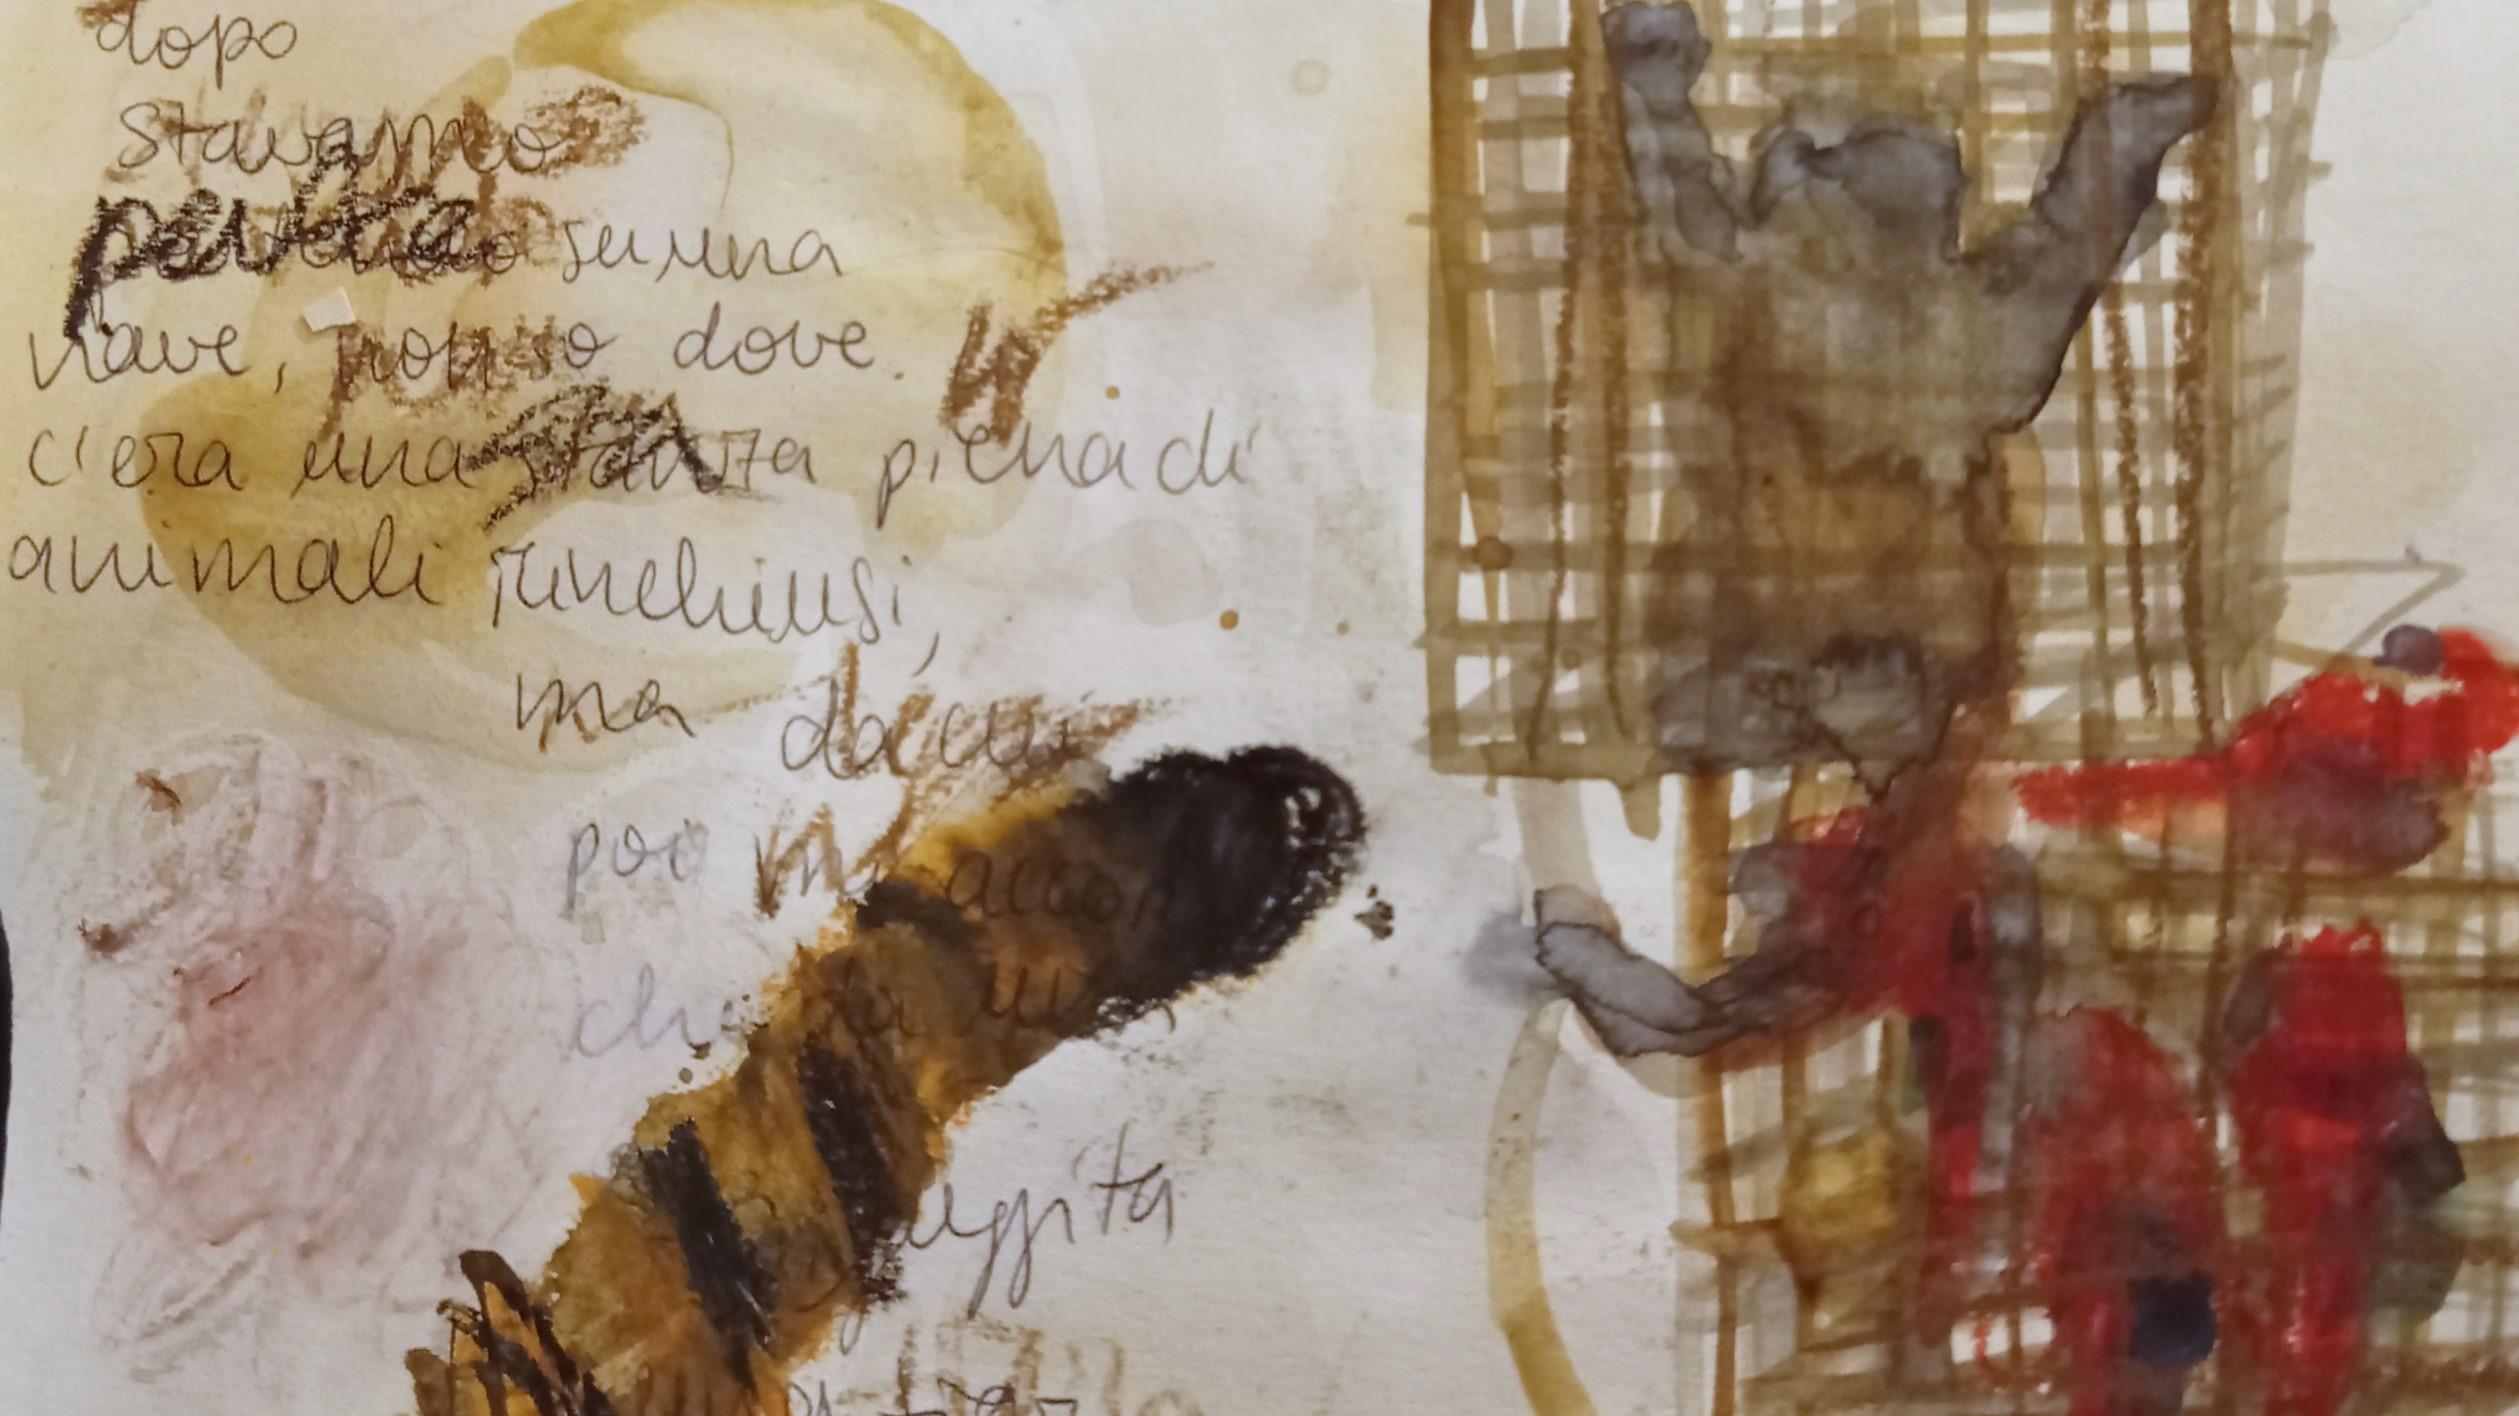 dopo
stavamo
su una
nave, non so dove.
c'era una stanza piena di
animali rinchiusi,
ma da cui
poi mi accor
che
fuggita